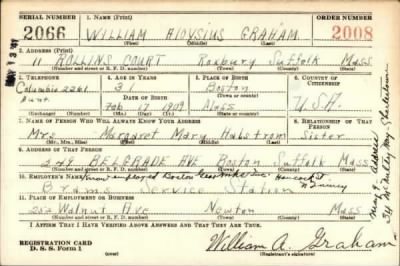 SERIAL NUMBER 1. NAME (Print) ORDER NUMBER
2066 WILLIAM ALOYSIUS GRAHAM. 2008
(First) (Middle) (Last)
2. ADDRESS (Print)
11 ROLLINS COURT Roxbury Suffolk Mass
(Number and street or R. F. D. number) (Town) (County) (State)
3. TELEPHONE 4. AGE IN YEARS 5. PLACE OF BIRTH 6. COUNTRY OF CITIZENSHIP
Columbia 2261 31 Boston
DATE OF BIRTH (Town or county)
Feb 17 1909 Mass U.S.A.
(Exchange) (Number) (Mo.) (Day) (Yr.) (State or country)
7. NAME OF PERSON WHO WILL ALWAYS KNOW YOUR ADDRESS 8. RELATIONSHIP OF THAT PERSON
Mrs Margaret Mary Halstrom Sister
(Mr., Mrs., Miss) (First) (Middle) (Last)
9. ADDRESS OF THAT PERSON
BELGRADE AVE Boston Suffolk Mass
(Number and street or R. F. D. number) (Town) (County) (State)
10. EMPLOYER'S NAME now employed Boston Hancock St
Brams Service Station Quincy
11. PLACE OF EMPLOYMENT OR BUSINESS
252 Walnut Ave Newton Mass
(Number and street or R. F. D. number) (Town) (County) (State)
I AFFIRM THAT I HAVE VERIFIED ABOVE ANSWERS AND THAT THEY ARE TRUE.
REGISTRATION CARD
D. S. S. Form 1
William A. Graham
(Registrant's signature)